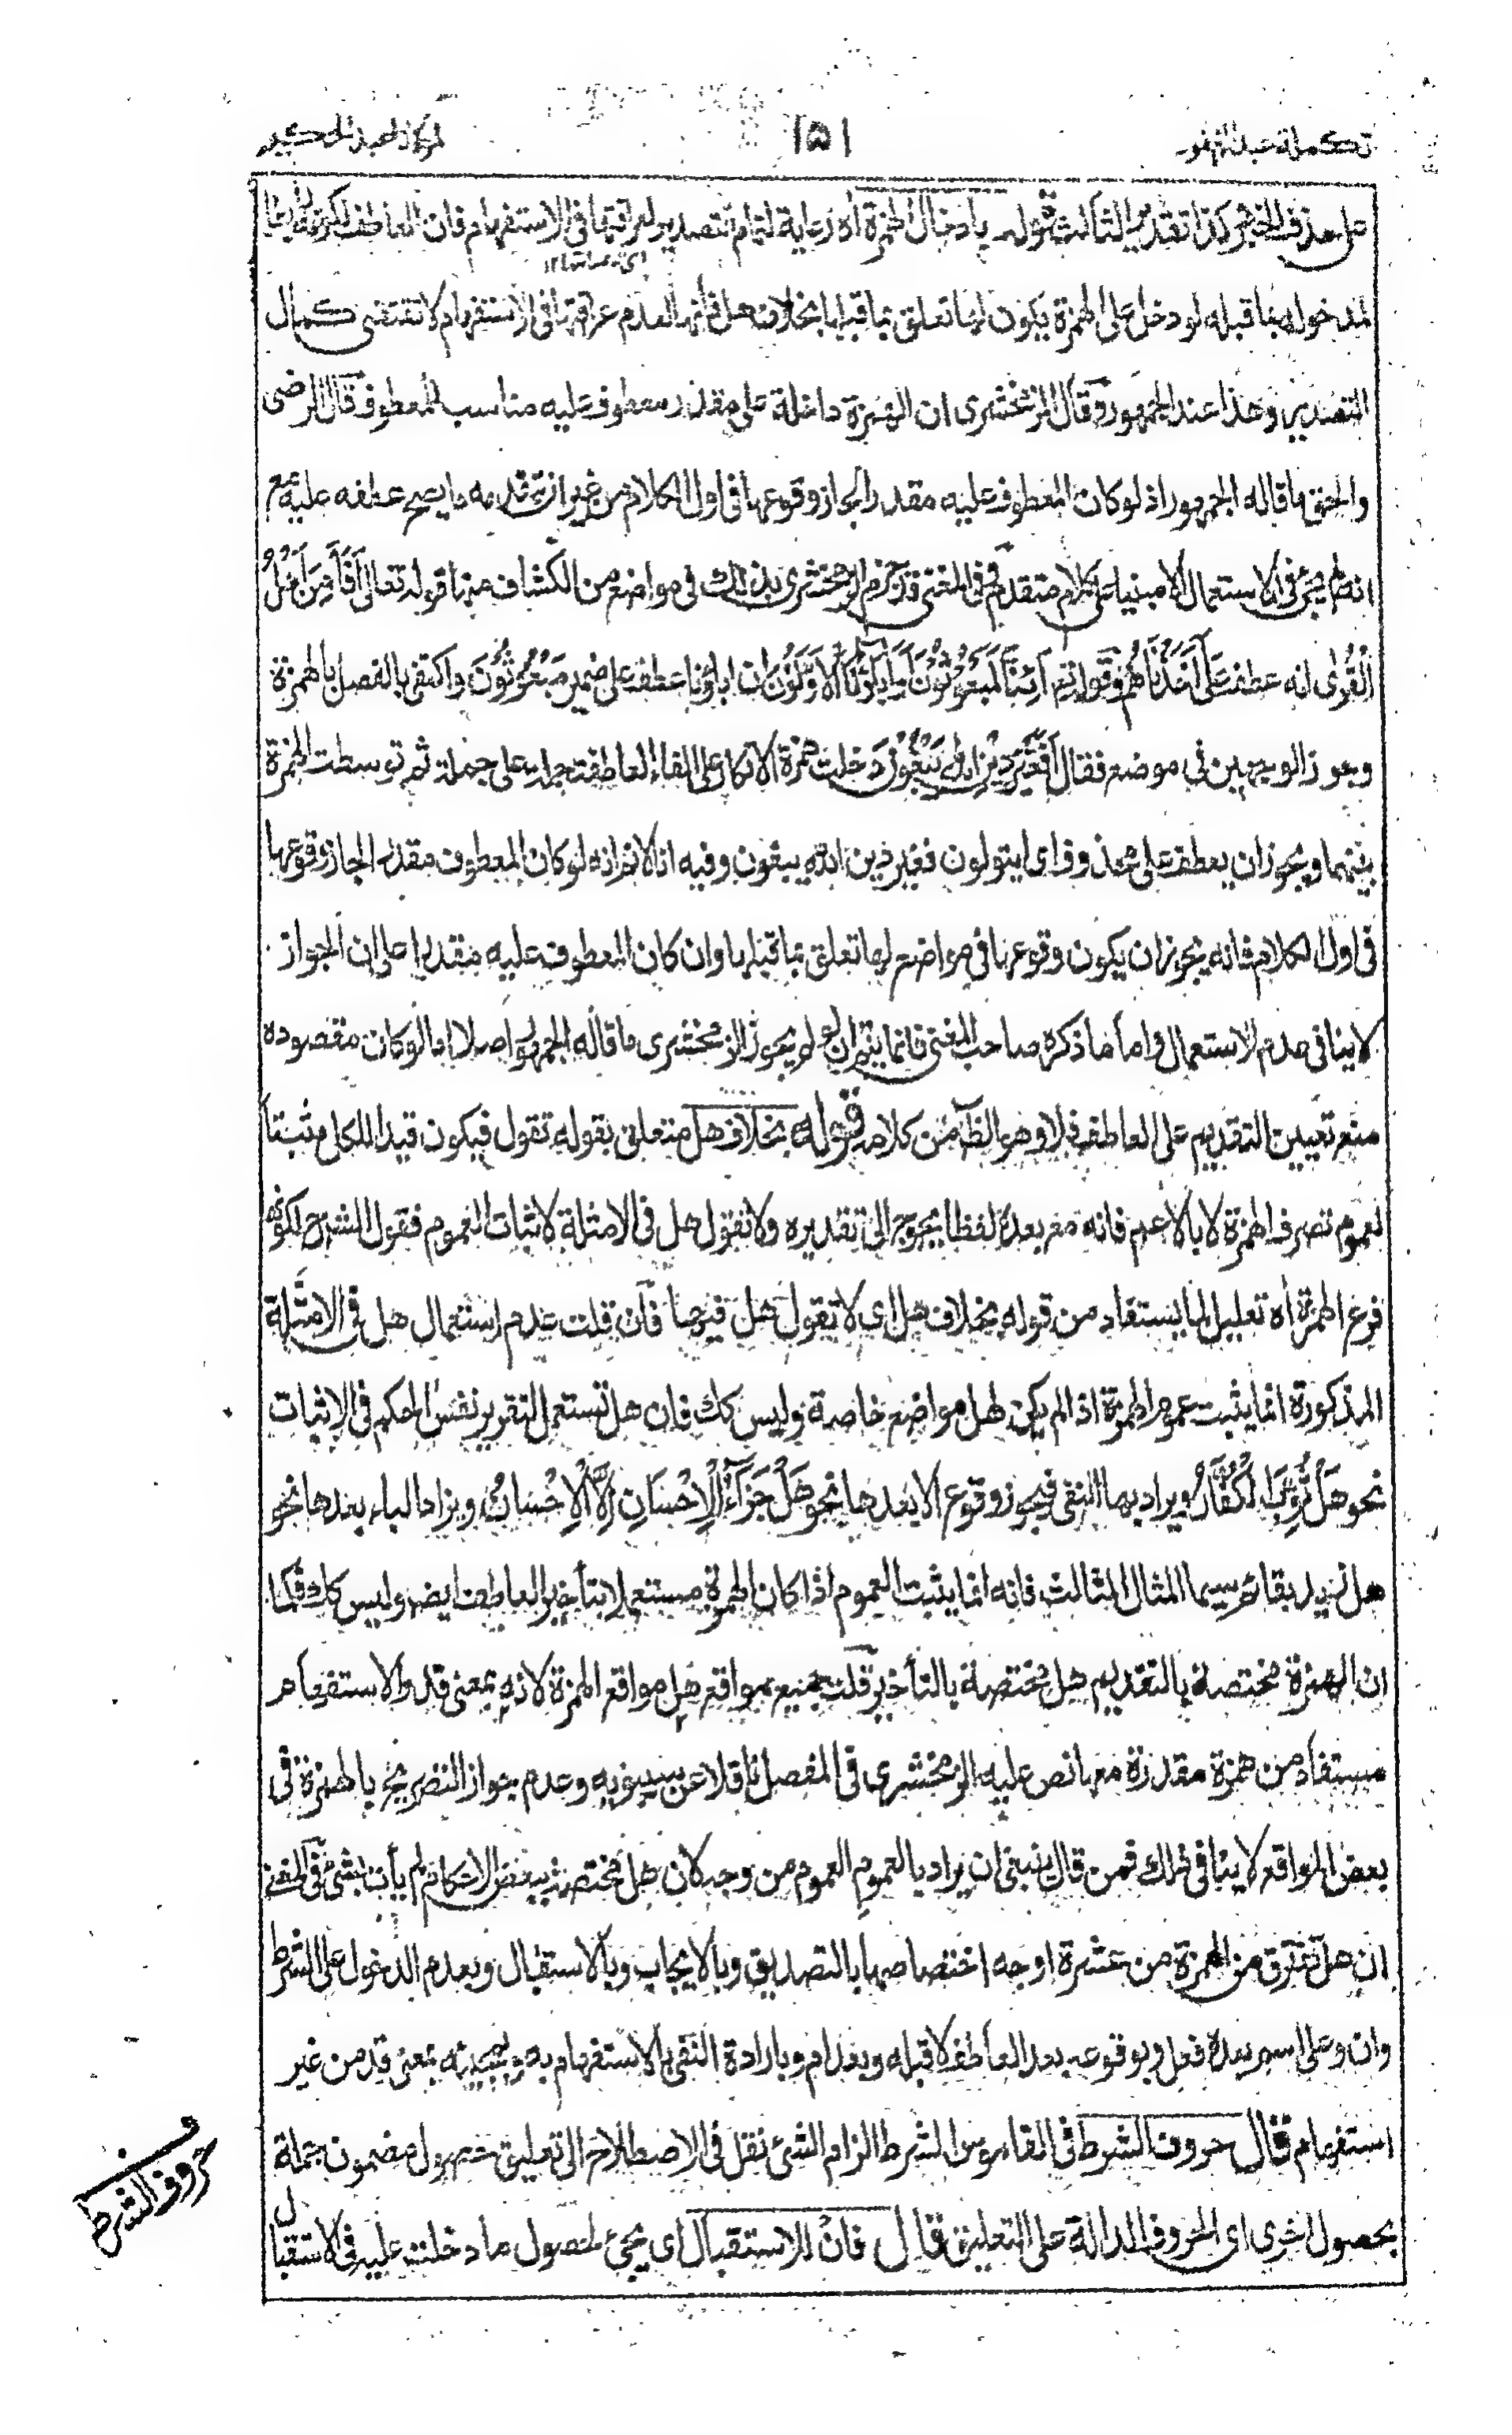 تكملة عبد الغفور
١٥١
لمولانا عبد الحكيم
على حذف الخبر كذا تقدير الثالث قوله بادخال الهمزة اه رعاية لتمام تصديرها لعراقتها فى الاستفهام فان العاطف لكونه رابطا
لمدخوله بما قبله لو دخل على الهمزة يكون لها تعلق بما قبلها بخلاف هل فانها لعدم عراقتها فى الاستفهام لا تقتضى كمال
التصدير وهذا عند الجمهور وقال الزمخشرى ان الهمزة داخلة على مقدر معطوف عليه مناسب للمعطوف قال الرضى
والحق ما قاله الجمهور اذ لو كان المعطوف عليه مقدرا لجاز وقوعها فى اول الكلام من غير ان تقدمه ما يصح عطفه عليه مع
انه لم يجئ فى الاستعمال الا مبنيا على كلام متقدم وفى المغنى قد جزم الزمخشرى بذلك فى مواضع من الكشاف منها قوله تعالى اَفَاَمِنَ اَهْلُ
الْقُرٰى انه عطف على اَخَذْنَاهُمْ وقوله تع اَئِنَّا لَمَبْعُوْثُوْنَ اَوَاٰبَاؤُنَا الْاَوَّلُوْنَ ان اباؤنا عطف على ضمير مَبْعُوْثُوْنَ واكتفى بالفصل بالهمزة
وجوز الوجهين فى موضع فقال اَفَغَيْرَ دِيْنِ اللّٰهِ يَبْغُوْنَ دخلت همزة الانكار على الفاء العاطفة جملة على جملة ثم توسطت الهمزة
بينهما ويجوز ان يعطف على محذوف اى ايتولون فغير دين الله يبغون وفيه انا لانم انه لو كان المعطوف مقدرا لجاز وقوعها
فى اول الكلام فانه يجوز ان يكون وقوعها فى مواضع لها تعلق بما قبلها وان كان المعطوف عليه مقدرا على ان الجواز
لا ينافى عدم الاستعمال واما ما ذكره صاحب المغنى فانما يتم ان لو لم يجوز الزمخشرى ما قاله الجمهور اصلا اما لو كان مقصوده
منع تعيين التقديم على العاطف فلا وهو الظآ من كلامه قوله بخلاف هل متعلق بقوله تقول فيكون قيدا للكل مثبتا
لعموم تصرف الهمزة لا بالاعم فانه مع بعده لفظا يحوج الى تقديره ولا نقول هل فى الامثلة لاثبات العموم فقول الشرح لكونه
فرع الهمزة اه تعليل لما يستفاد من قوله بخلاف هل اى لا تقول هل فيها فان قلت عدم استعمال هل فى الامثلة
المذكورة انما يثبت عموم الهمزة اذا لم يكن لهل مواضع خاصة وليس كك فان هل تستعمل لتقرير نفس الحكم فى الاثبات
نحو هَلْ ثُوِّبَ الْكُفَّارُ ويراد بها النفى فيجوز وقوع الا بعدها نحو هَلْ جَزَآءُ الْاِحْسَانِ اِلَّا الْاِحْسَانُ ويزاد الباء بعدها نحو
هل زيد بقائم سيما المثال الثالث فانه انما يثبت العموم اذا كان الهمزة مستعملا بتأخير العاطف ايضه وليس كك فكما
ان الهمزة مختصة بالتقديم هل مختصة بالتأخير قلت جميع مواقع هل مواقع الهمزة لانه بمعنى قد والاستفهام
مستفاد من همزة مقدرة معها نص عليه الزمخشرى فى المفصل ناقلا عن سيبويه وعدم جواز التصريح بالهمزة فى
بعض المواقع لا ينافى ذلك فمن قال ينبغى ان يراد بالعموم العموم من وجه كأن هل مختصة ببعض الاحكام لم يأت بشئ وفى المغنى
ان هل تفترق من الهمزة من عشرة اوجه اختصاصها بالتصديق وبالايجاب وبالاستقبال وبعدم الدخول على الشرط
وان وعلى اسم بعده فعل وبوقوعه بعد العاطف لا قبله وبعد ام وبارادة النفى بالاستفهام به وبمجيئه بمعنى قد من غير
استفهام قال حروف الشرط فى القاموس الشرط الزام الشئ نقل فى الاصطلاح الى تعليق حصول مضمون جملة
بحصول اخرى اى الحروف الدالة على التعليق قال فان للاستقبال اى يجئ لحصول ما دخلت عليه فى الاستقبال
حروف الشرط